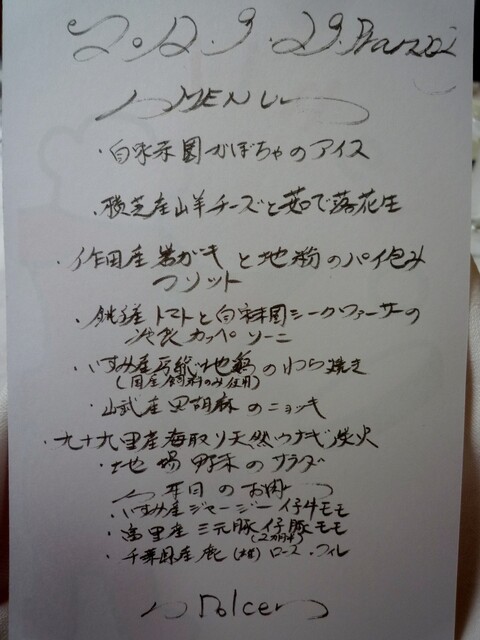 2.12.9.29. Pranzo
MENU
・自家菜園かぼちゃのアイス
・横芝産山羊チーズと茹で落花生
・作田産岩ガキと地粉のパイ包み
フリット
・銚子産トマトと自家菜園シークヮーサーの
冷製カッペリーニ
・いすみ産 地鶏のわら焼き
(国産飼料のみ使用)
・山武産黒胡麻のニョッキ
・九十九里産海取り天然ウナギ炭火
・地場野菜のサラダ
本日のお肉
・いすみ産ジャージー仔牛モモ
・富里産三元豚仔豚モモ
・千葉県産鹿 ロース・フィレ
Dolce